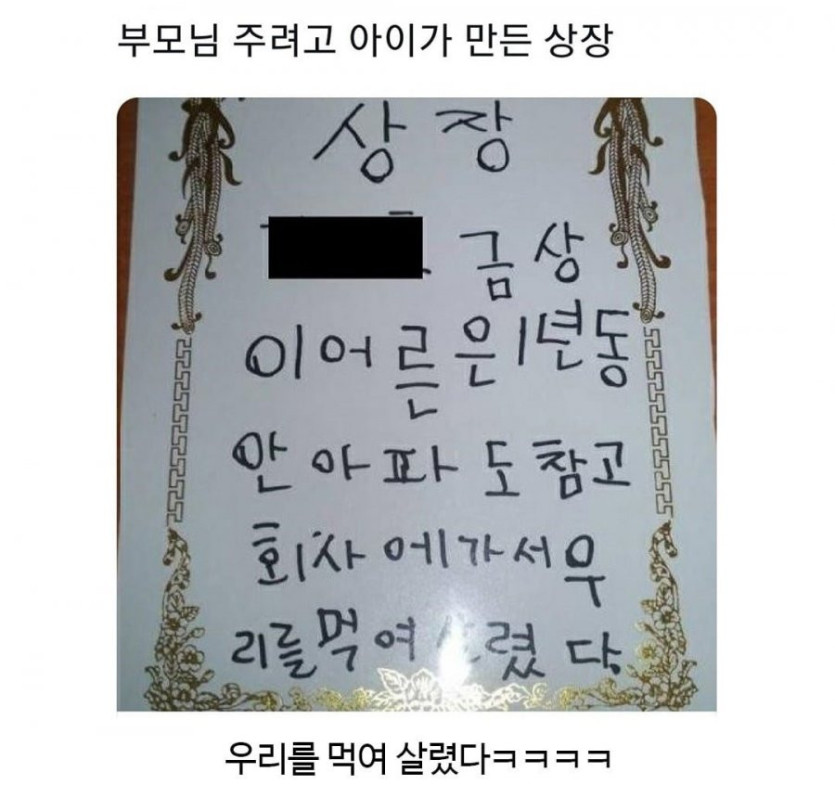 부모님 주려고 아이가 만든 상장
상 장
금 상
이 어 른 은 1년 동
안 아 파 도 참고
회사 에 가 서 우
리를 먹 여 살 렸 다.
우리를 먹여 살렸다ㅋㅋㅋㅋ